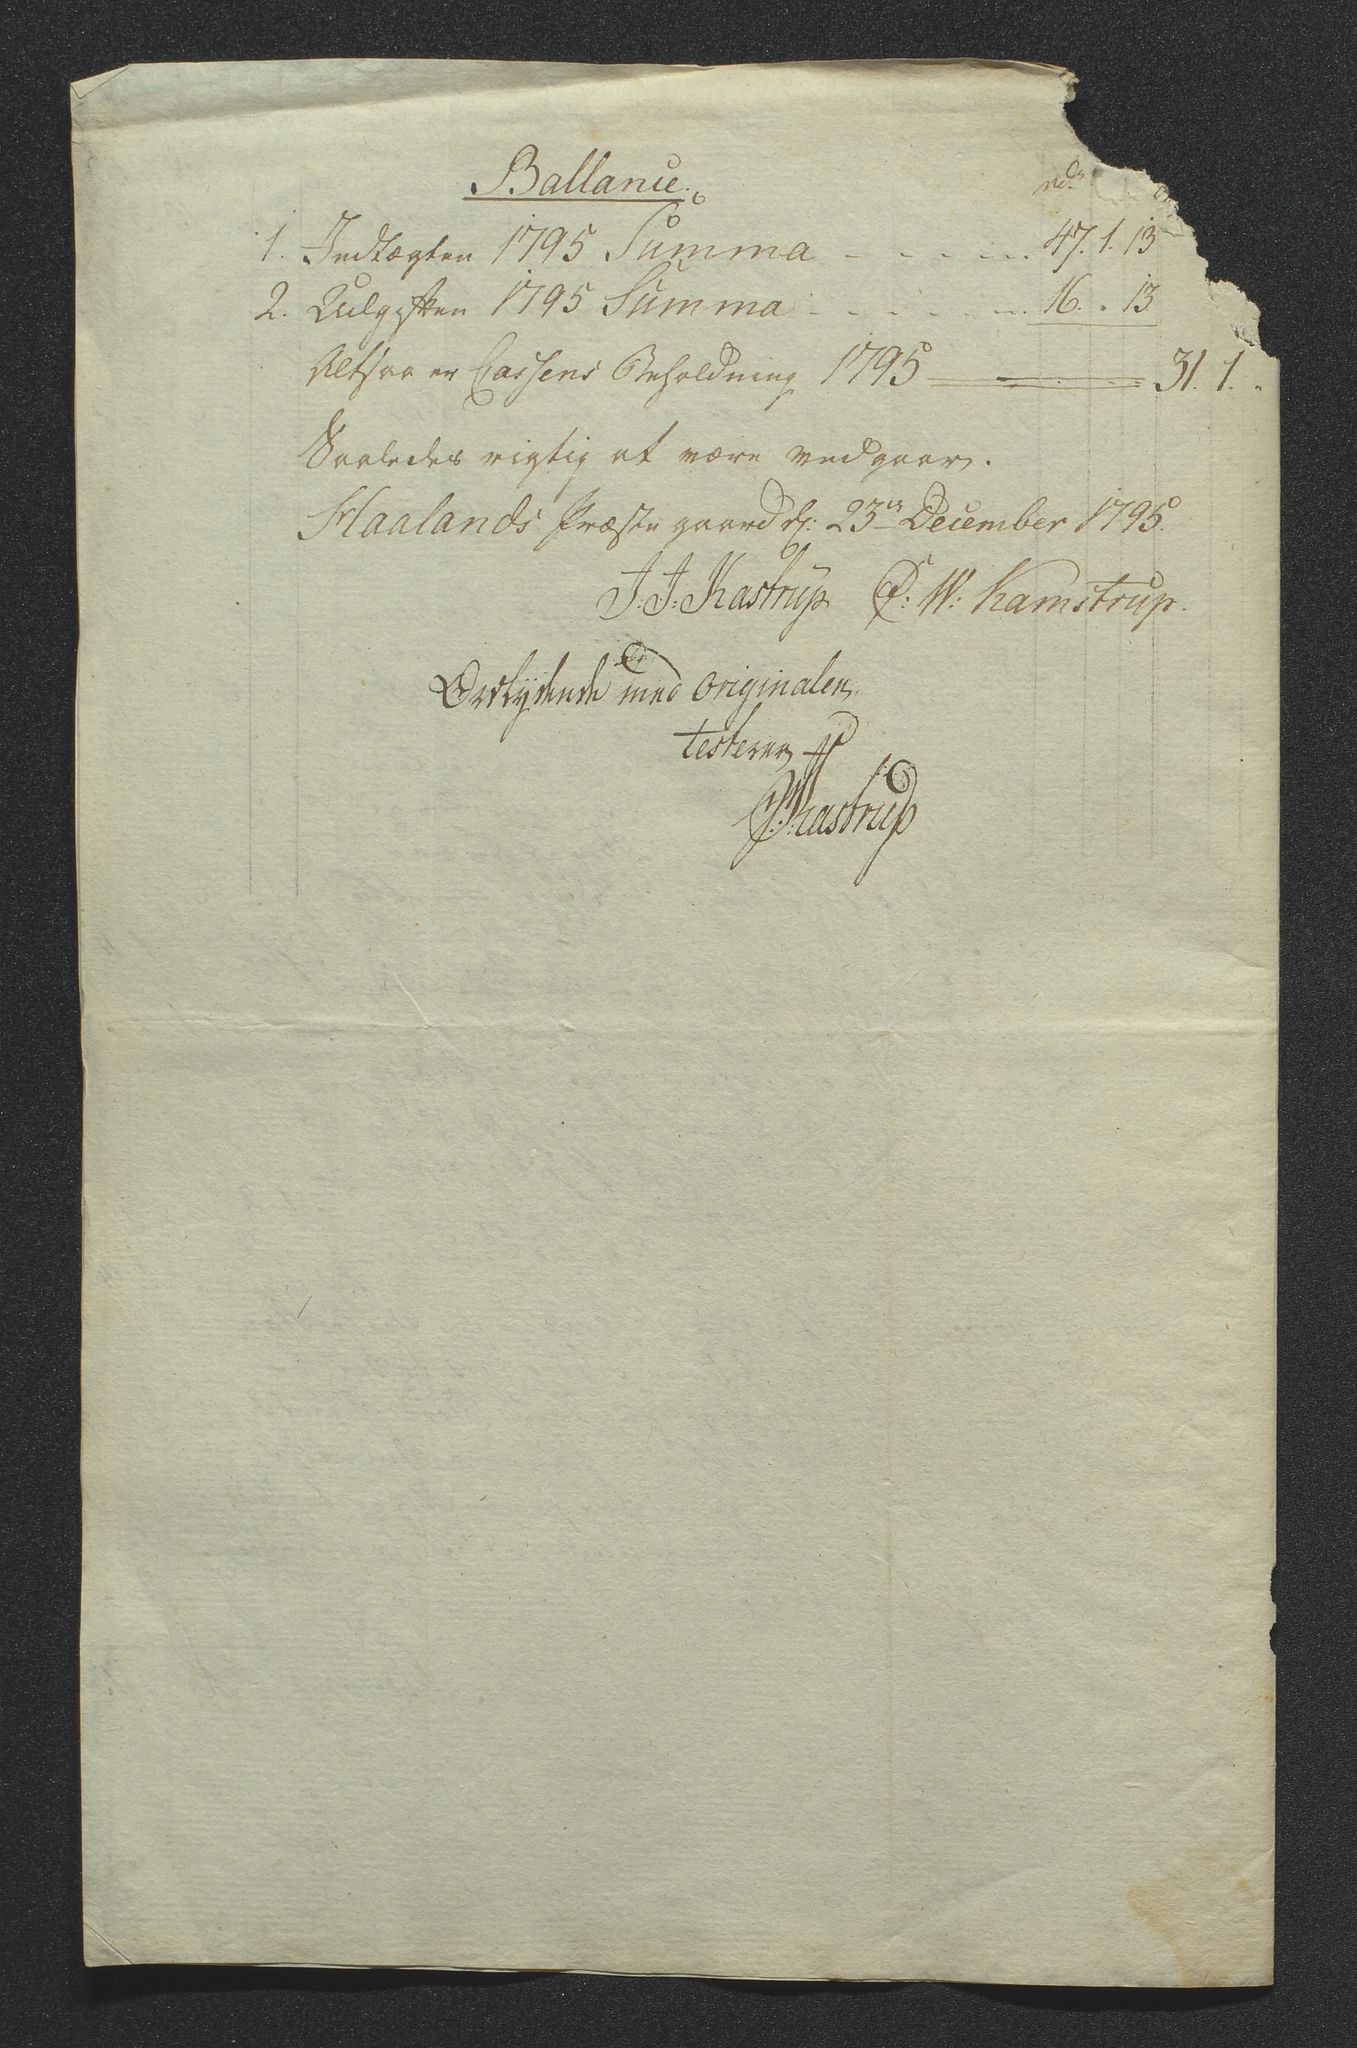 Ballance.
rd.
1. Indtægten 1795 Summa - - - - - 47. 1. 13
2. Udgiften 1795 Summa - - - - - 16. " 13
Altsaa er Cassens Beholdning 1795 ——— 31. 1. "
Saaledes rigtig at være vedgaar.
Haalands Præstegaard d: 23de December 1795.
J. J. Kastrup C: W: Kamstrup.
Ordlydende med originalen
testerer
Kastrup